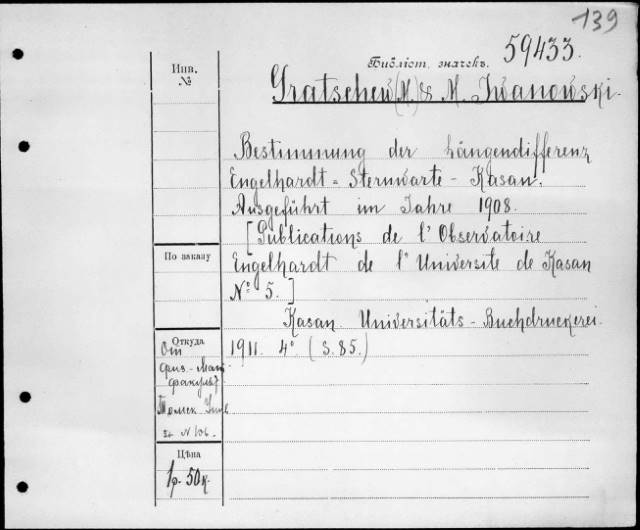 139
Библіот. значекъ. 59433.
Инв.
№
Gratschew (M) & M. Iwanowski.
Bestimmung der Längendifferenz
Engelhardt = Sternwarte - Kasan.
Ausgeführt im Jahre 1908.
[Publications de l' Observatoire
По заказу
Engelhardt de l' Universite de Kasan
No 5.]
Kasan. Universitäts - Buchdruckerei.
Откуда
1911. 4° (S. 85.)
От
физ.- Мат.
факульт.
Томск.
№ 106.
Цѣна
1р. 50к.